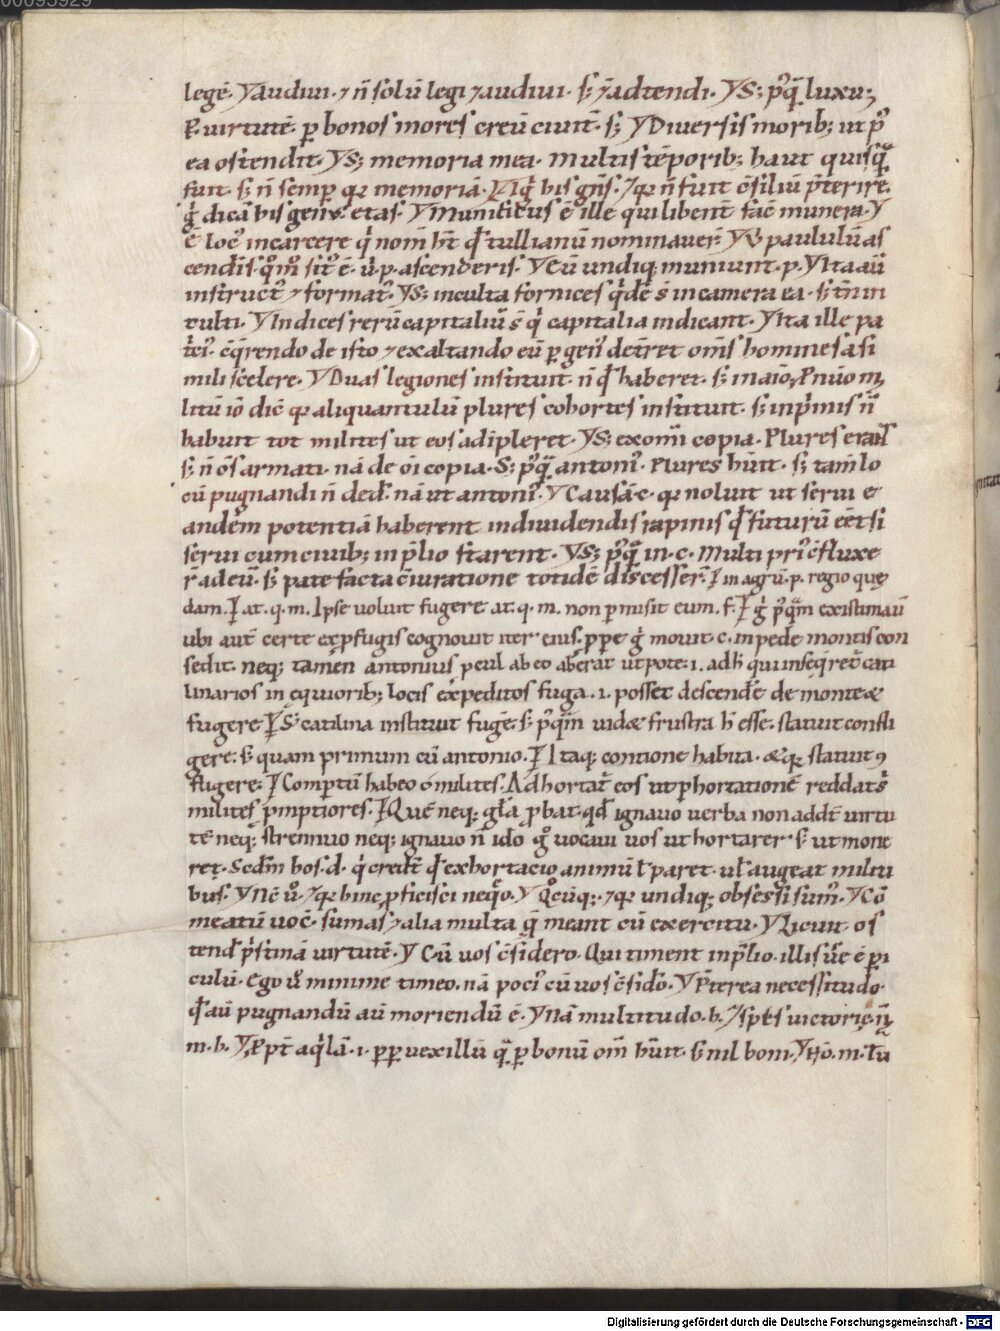 00095929
legē· Audiui· ⁊ n̄ solū legi ⁊ audiui· s; ⁊ adtendi· S; p̄q̄ luxu;
R· uirtutē· p bonos mores creū ciuit̄· s; Diuersis morib; ut p̄
ea ostendit· S; memoria mea· multis tēporib; haut quisq̄
fuit· s; n̄ semp̄ memoriā· bis gn̄s· n̄ fuit c̄siliū p̄terire·
g̊ dicā bis etas· Munificus ē ille qui libent̄ fac̄ munera·
Ē loc᷒ in carcere q̊ nom̄ h̄t qd̄ tullianū nominauer̄· paululū as
cendis· sit᷒ ē· u̇·p·ascenderis· Cū undiq; muniunt·p· Ita aū
instruct᷒ ⁊ format᷒· S; inculta fornices s̄ in camera ea· s; tn̄ in
culti· Indices rerū capitaliū s̄ q̇ capitalia indicant· Ita ille pa
de isto ⁊ exaltando eū p gen᷒ det̄ret om̄s homines a si
mili scelere· Duas legiones instituit· n̄ qd̄ haberet· s; in
litū iō dic̄ aliquantulū plures cohortes instituit· s; in ṗmis n̄
habuit tot milites ut eos adīpleret· S; ex om̄i copia· Plures erant
s; n̄ ōs armati· nā de ōi copia· S; p̄q̄ antoni᷒· Plures hūt· s; tam̄ lo
cū pugnandi n̄ ded̄· nā ut antoni᷒· Causā·c· noluit ut serui e
andem potentiā haberent in diuidendis rapinis qd̄ futurū eēt si
serui cum ciuib; in p̄lio starent· S; p̄q̄ in·c· Multi pri᷒ c̄fluxe
rad eū· s; patefacta c̄iuratione totidē discesser̄· in agrū·p·regio quę
dam· at·q·m· Ipse uoluit fugere at·q·m· non pmisit eum·f· g̊ p̄q̄m existimau
ubi aut̄ certe ex pfugis cognouit iter eius· g̊ mouit·c· in pede montis con
sedit· neq; tamen antonius pcul ab eo aberat utpote·i· ad h̄ qui inseq̄ret̄ cati
linarios in equiorib; locis expeditos fuga·i· posset descende de monte &
fugere S᷒ catilina instituit fuge· s; p̄q̄m uid& frustra h̄ esse· statuit confli
gere· s; quam primum cū antonio· Itaq; contione habita· statuit ꝯ
fligere· Compertū habeo o milites· Adhortat̄ eos ut p hortationē reddat᷒
milites p̄mptiores· Quē neq; gła pbat· qd̄ ignauo uerba non addē uirtu
tē neq; strennuo neq; ignauo n̄ idō g̊ uocaui uos ut hortarer s; ut mone
rer· Sed m̄ hos·d· q̇ credt̄ qd̄ exhortacio animū ł paret· uł augeat militi
bus· Nē u̇· hinc pficisci neq̊o· Q̊cūq; undiq; obsessi sum᷒· Cō
meatū uoc̄· sumas ⁊ alia multa q̄ meant cū exercitu· Licuit· os
tend̄ ṗstinā uirtutē· Cū uos c̄sidero· Qui timent in p̄lio· illis ē pi
culū· Ego ů minime timeo· nā poci᷒ cū uos c̄sid̄o· P̄terea necessitudo·
qd̄ aū pugnandū aū moriendū ē· Nā multitudo·h· spes uictorię
m·h· aq̇lā·i· uexillū q̄ p bonū om̄ hūit· s; nil boni· m·
Digitalisierung gefördert durch die Deutsche Forschungsgemeinschaft - DFG